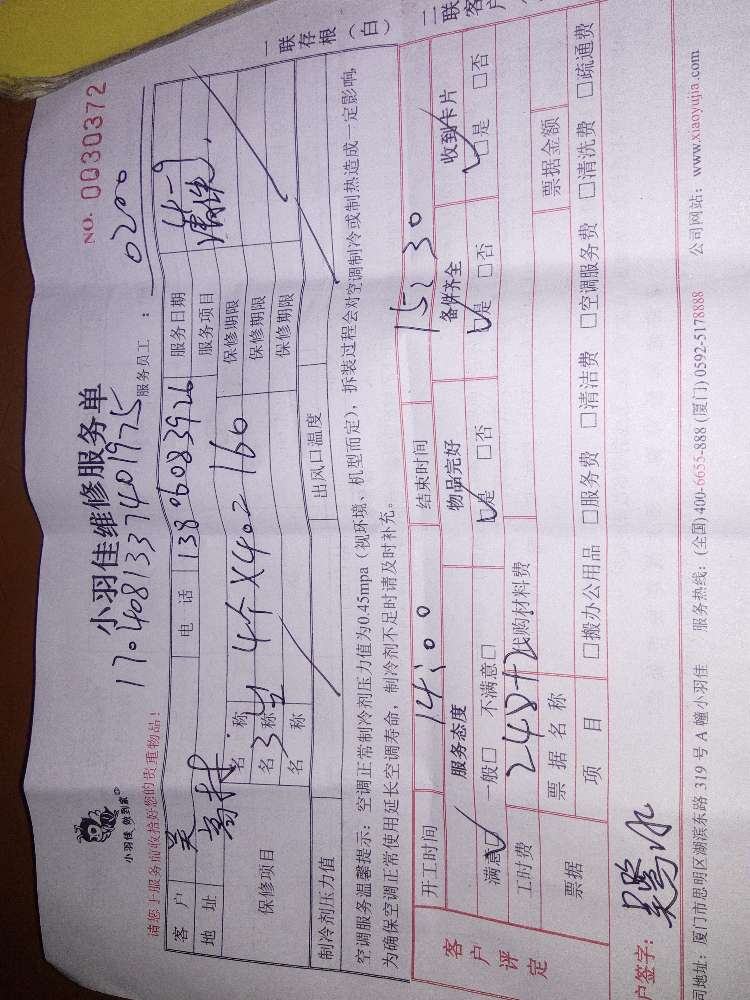 小羽佳 做到家
小羽佳维修服务单
NO. 0030372
17040813374 01975
请您于服务前收拾好您的贵重物品!
服务员工: 0200
客户 吴 电话 13806083926 服务日期
地址 服务项目 清保
保修项目 名称 保修期限
名称 3台 4个X40=160 保修期限
名称 保修期限
制冷剂压力值 出风口温度
空调服务温馨提示:空调正常制冷剂压力值为0.45mpa(视环境、机型而定),拆装过程会对空调制冷或制热造成一定影响,
为确保空调正常使用延长空调寿命,制冷剂不足时请及时补充。
一联存根(白)
二联客户
开工时间 14:00 结束时间 15:30
客户评定
服务态度 物品完好 备件齐全 收到卡片
满意□ 一般□ 不满意□ □是 □否 □是 □否 □是 □否
工时费 代购材料费
票据 票据名称 票据金额
项目 □搬办公用品 □服务费 □清洁费 □空调服务费 □清洗费 □疏通费
户签字:
司地址:厦门市思明区湖滨东路 319 号 A 幢小羽佳 服务热线:(全国)400-6655-888 (厦门)0592-5178888 公司网站:www.xiaoyujia.com